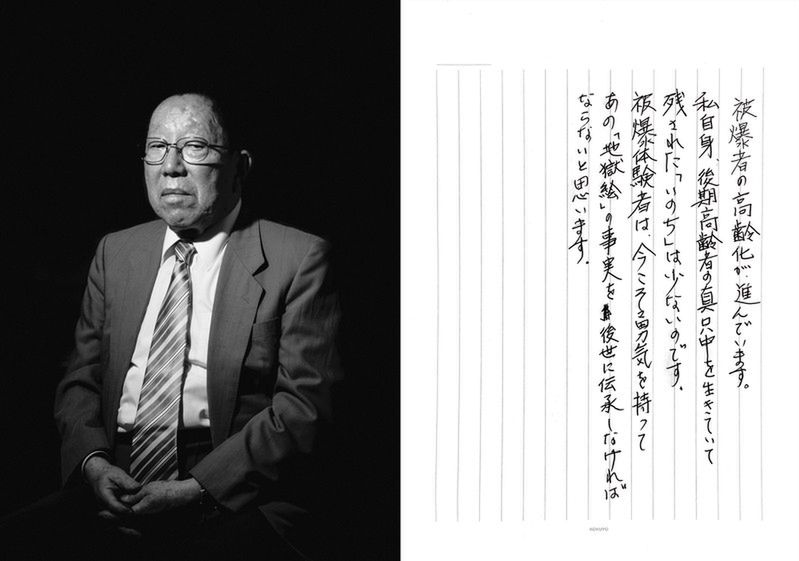 被爆者の高齢化が進んでいます。
私自身、後期高齢者の真只中を生きていて
残された「いのち」は少ないのです。
被爆体験者は、今こそ勇気を持って
あの「地獄絵」の事実を後世に伝承しなければ
ならないと思います。
KOKUYO